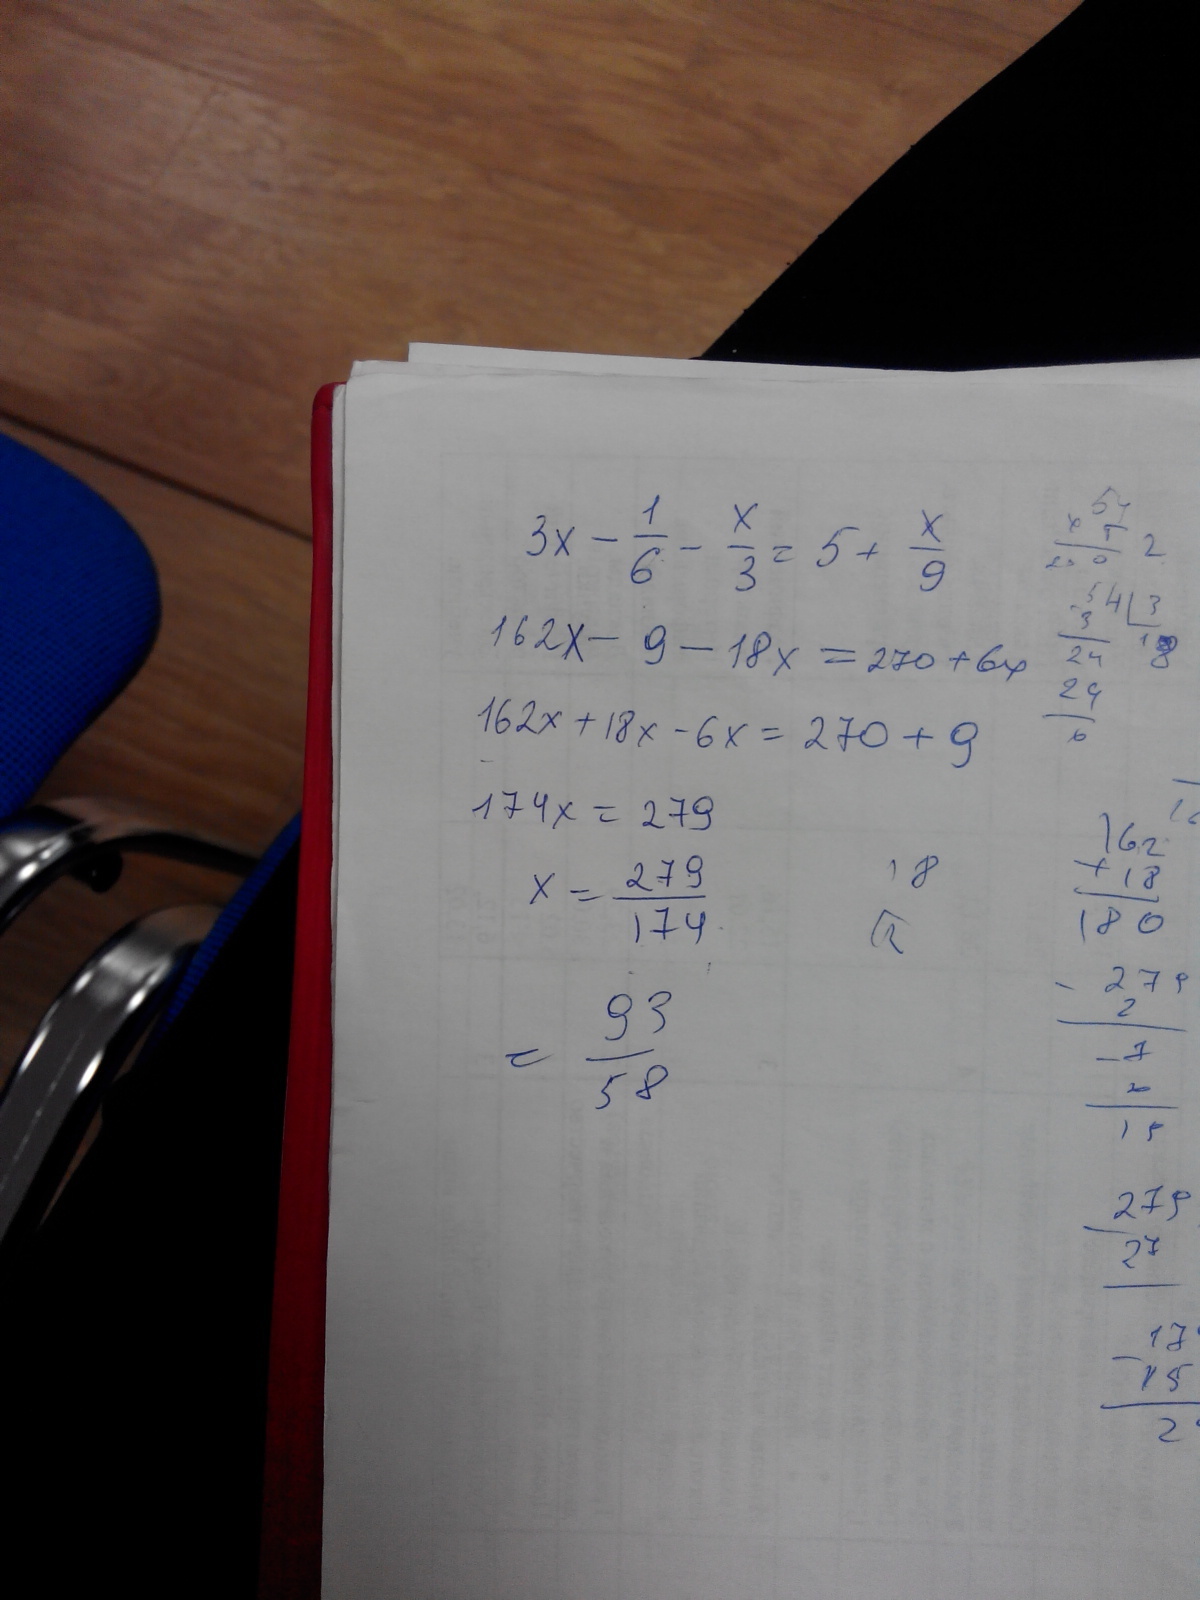 3x - 1/6 - x/3 = 5 + x/9
162x - 9 - 18x = 270 + 6x
162x + 18x - 6x = 270 + 9
174x = 279
x = 279/174
= 93/58
18
2
54 3
3 18
24
24
0
162
+ 18
180
- 279
2
- 7
15
279
- 27